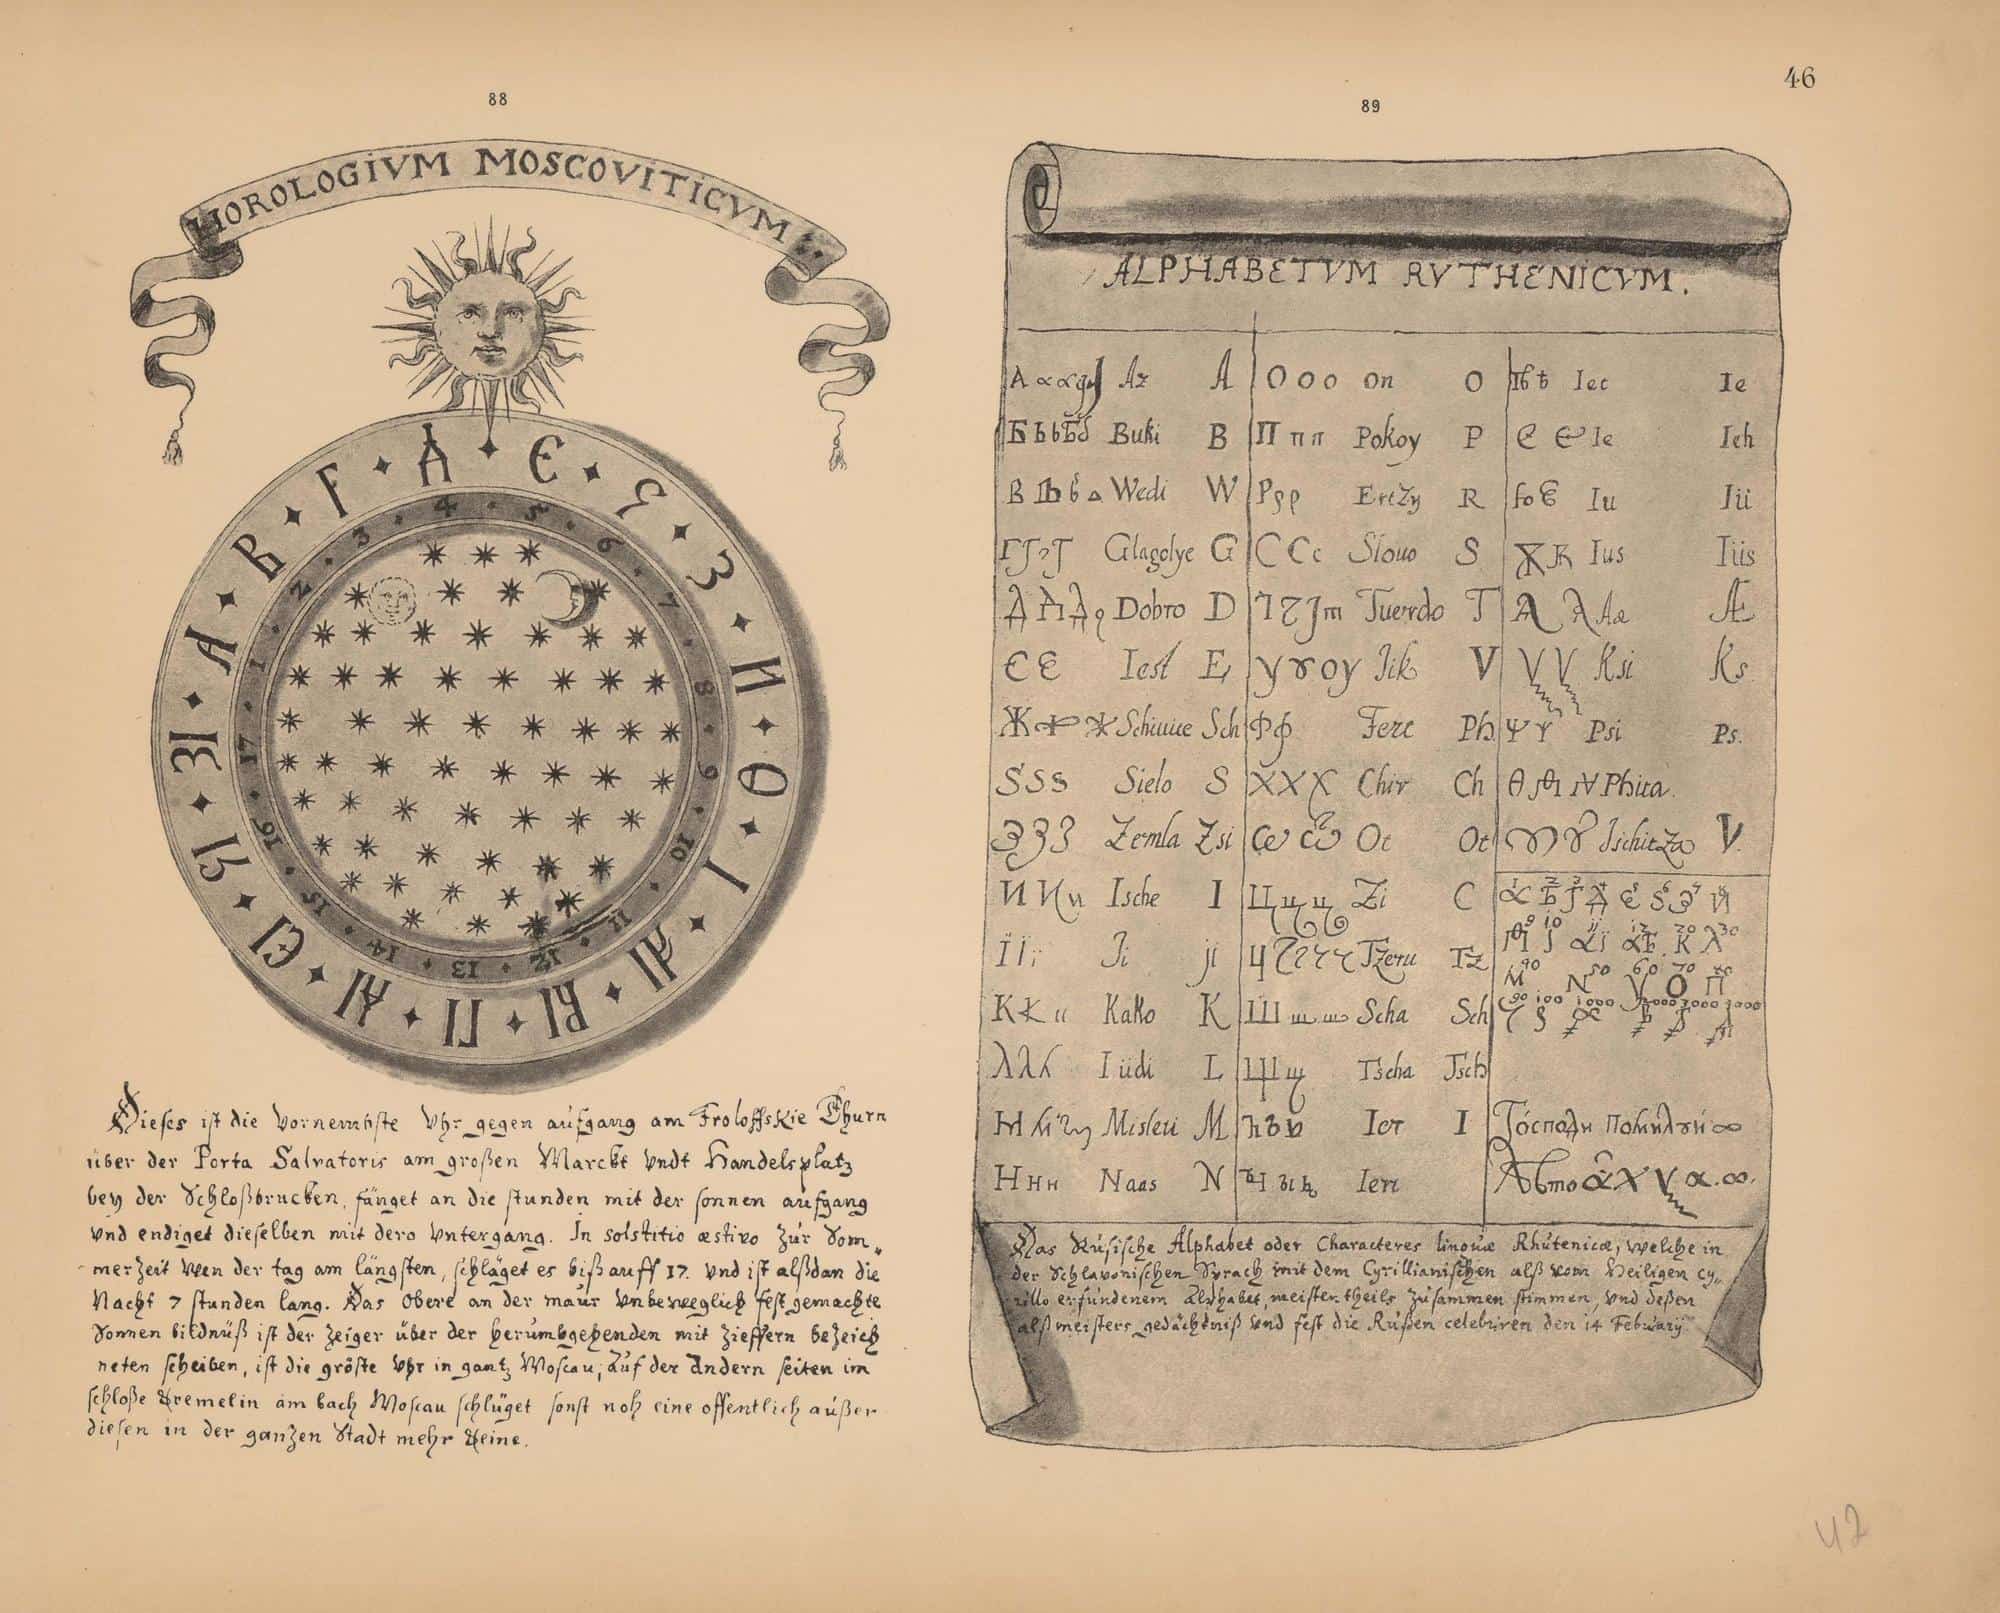 46
88
HOROLOGIVM MOSCOVITICVM
А В Г Д Є Ѕ З И Ѳ І АІ ВІ ГІ ДІ ЄІ ЅІ ЗІ
1 2 3 4 5 6 7 8 9 10 11 12 13 14 15 16 17
Dieses ist die Vornembste Vhr gegen aufgang am Froloffskie Thurn
über der Porta Salvatoris am großen Marckt vndt Handelsplatz
bey der Schloßbrucken, fänget an die stunden mit der sonnen aufgang
vnd endiget dieselben mit dero vntergang. In solstitio æstivo zur Som„
merzeit wen der tag am längsten, schläget es biß auff 17. vnd ist alßdan die
Nacht 7 stunden lang. Das Obere an der maur vnbeweglich fest gemachte
Sonnen bildnüß ist der zeiger über der herumbgehenden mit zieffern bezeich
neten scheiben, ist die gröste vhr in gantz Moscau, auf der andern seiten im
schloße Kremelin am bach Moscau schlüget sonst noh eine offentlich außer
diesen in der ganzen Stadt mehr Keine.
89
ALPHABETVM RVTHENICVM.
А Az A О о о On O Ѣ ѣ Iet Ie
Б Buki B П п п Pokoy P Є є Ie Ieh
В Wedi W Р р р Ertzy R Ю Iu Iü
Г Glagolye G С С с Slouo S Ѫ Ius Iüs
Д Д Д Dobro D Т т Tuerdo T Ѧ Ѧ Ae Æ
Є Є Iest E У ꙋ оу Jik V Ksi Ks.
Ж Ж Schiuue Sch Ф ф Ferc Ph Ѱ Ѱ Psi Ps.
Ѕ Ѕ ѕ Sielo S Х Х Х Chir Ch Ѳ Phita.
З З З Zemla Zsi Ѡ Ѿ Ot Ot Jschitza V.
И И и Ische I Ц ц ц Zi C
Ї Ї ї Ji ji Ч Tzeru Tz
К К к Kako K Ш ш ш Scha Sch
Л Л л Lüdi L Щ щ Tscha Tsch
М М Misleti M Ъ Ier I Господи помилуи
Н н н Naas N Ieri
Das Rusische Alphabet oder Characteres linguæ Rhutenicæ, welche in
der Schlavonischen Sprach mit dem Cyrillianischen alß vom Heiligen Cy„
rillo erfundenem Alphabet, meistentheils zusammen stimmen, vnd deßen
alß meisters gedächtniß vnd fest die Rußen celebriren den 14 Februarij
42